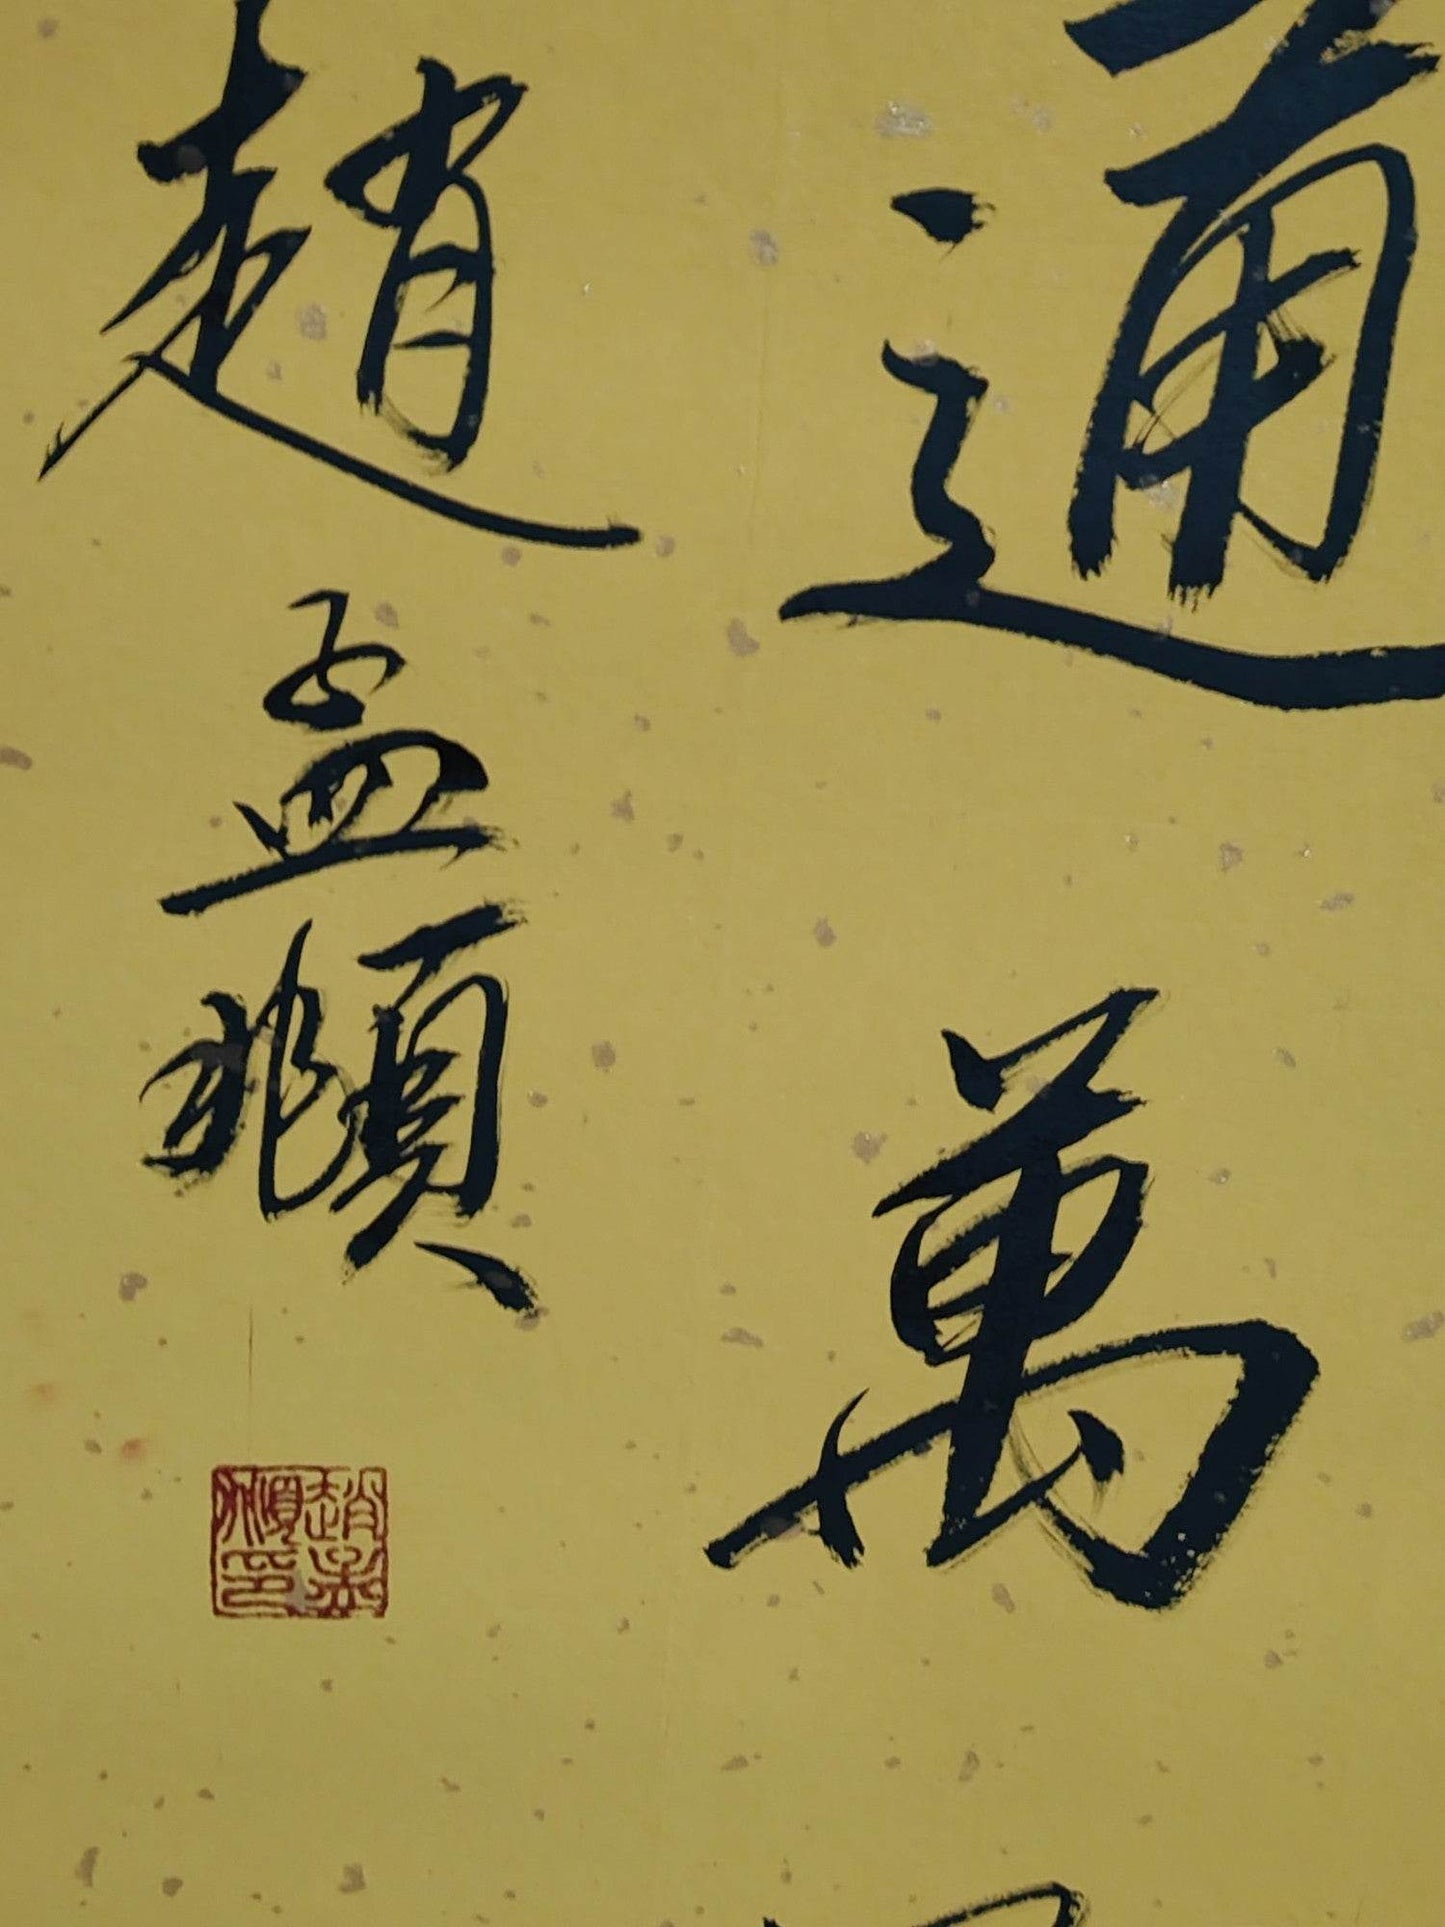 通萬
趙孟頫
趙孟
頫印